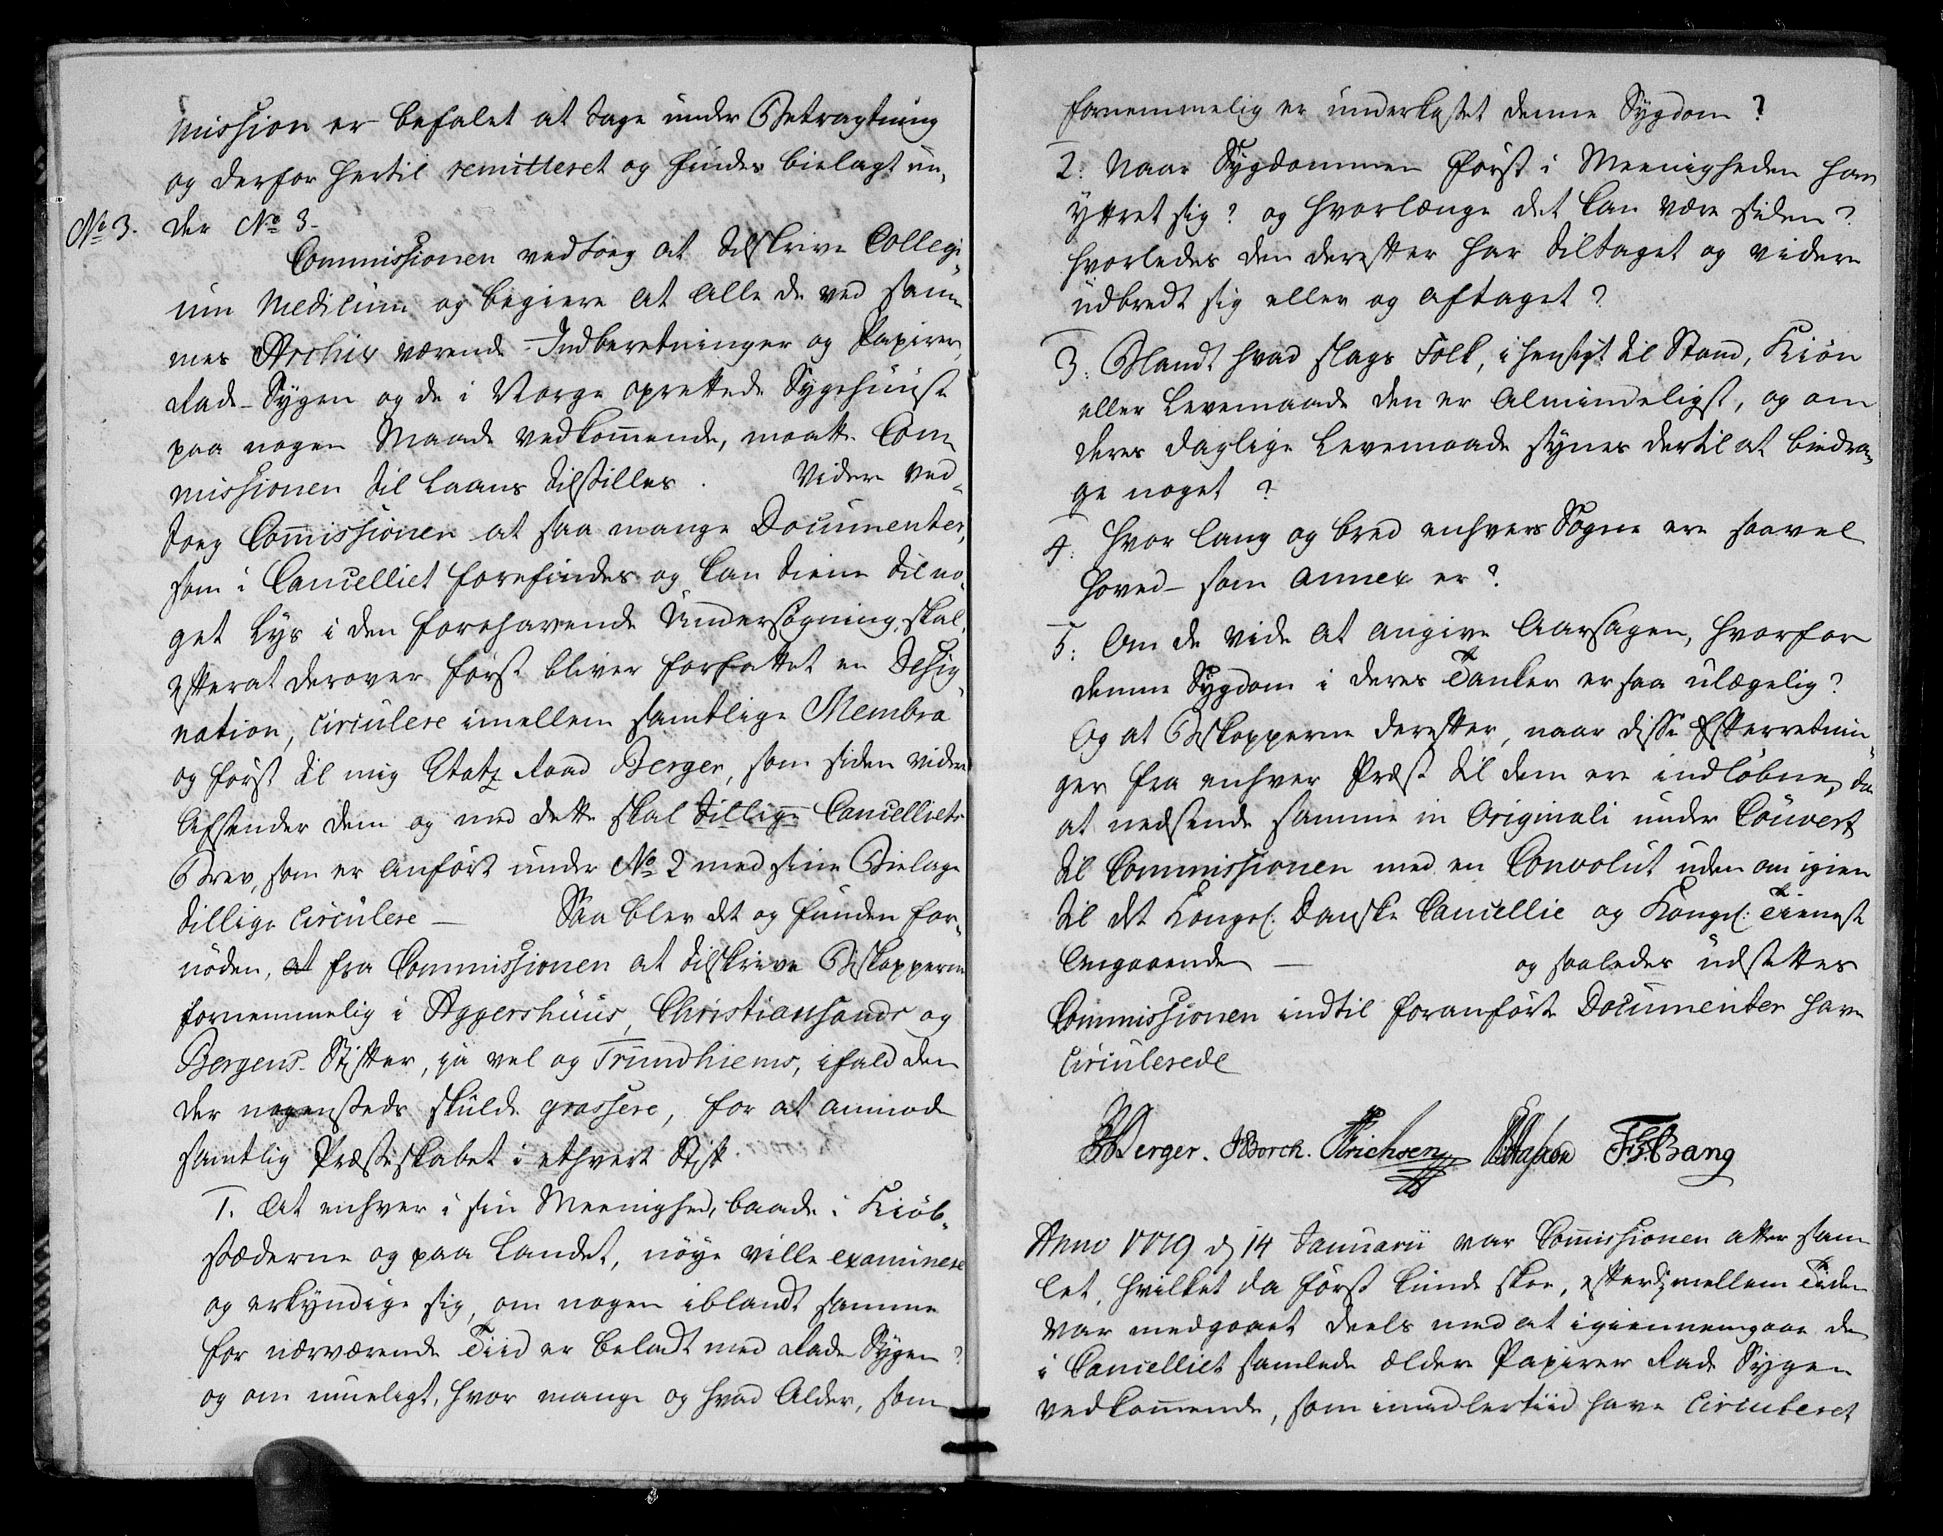 mission er befalet at tage under Betragtning
og derfor hertil remitteret og findes bielagt un„
No 3. der No 3.
Commissionen vedtoeg at tilskrive Collegi„
um Medicum og begiere at alle de ved sam„
mes Archiv værende Indberetninger og Papirer,
Rade-Sygen og de i Norge oprettede Sygehuuse
paa nogen Maade vedkommende, maatte Com„
missionen til Laans tilstilles. Videre ved„
toeg Commissionen at saa mange Documenter,
som i Cancelliet forefindes og kan tiene til no„
get Lys i den forehavende Undersøgning, skal,
efterat derover først bliver forfattet en Desig„
nation, circulere imellem samtlige Membra
og først til mig Etatz Raad Berger, som siden videre
afsender dem og med dette skal tillige Cancelliets
Brev, som er anført under No 2 med sine Bielage
tillige circulere — Saa blev det og funden for„
nøden, at fra Commissionen at tilskrive Biskopperne
fornemmelig i Aggershuus, Christiansands og
Bergens Stifter, ja vel og Trundhiems, ifald den
der nogensteds skulde grassere, for at anmode
samtlig Præsteskabet i ethvert Stift
1. At enhver i sin Meenighed, baade i Kiøb„
stæderne og paa Landet, nøye ville examinere
og erkyndige sig, om nogen iblandt samme
for nærværende Tiid er beladt med Rade Sygen?
og om mueligt, hvor mange og hvad Alder, som
fornemmelig er underkastet denne Sygdom?
2. Naar Sygdommen først i Meenigheden har
yttret sig? og hvorlænge det kan være siden?
hvorledes den derefter har tiltaget og videre
udbredt sig eller og aftaget?
3. Blandt hvad slags Folk, i henseigt til Stand, Kiøn
eller Levemaade den er almindeligst, og om
deres daglige Levemaade synes dertil at bidra„
ge noget?
4. Hvor lang og bred enhvers Sogne ere saavel
Hoved- som Annex er?
5: Om de vide at angive Aarsagen, hvorfor
denne Sygdom i deres Tanker er saa ulægelig?
Og at Biskopperne derefter, naar disse Efterretnin„
ger fra enhver Præst til dem ere indløbne, da
at nedsende samme in Originali under Couvert
til Commissionen med en Convolut uden om igien
til det Kongel: Danske Cancellie og Kongel: Tieneste
Angaaende — og saaledes udsettes
Commissionen indtil foranførte Documenter have
circulerede
Berger. Borch. Erichsen F: L: Bang
Anno 1779 d 14 Januarii var Commissionen atter sam„
let, hvilket da først kunde skee, efterdi mellem Tiden
var medgaaet deels med at igiennemgaae de
i Cancelliet samlede ældere Papirer Rade Sygen
vedkommende, som imidlertiid have circuleret